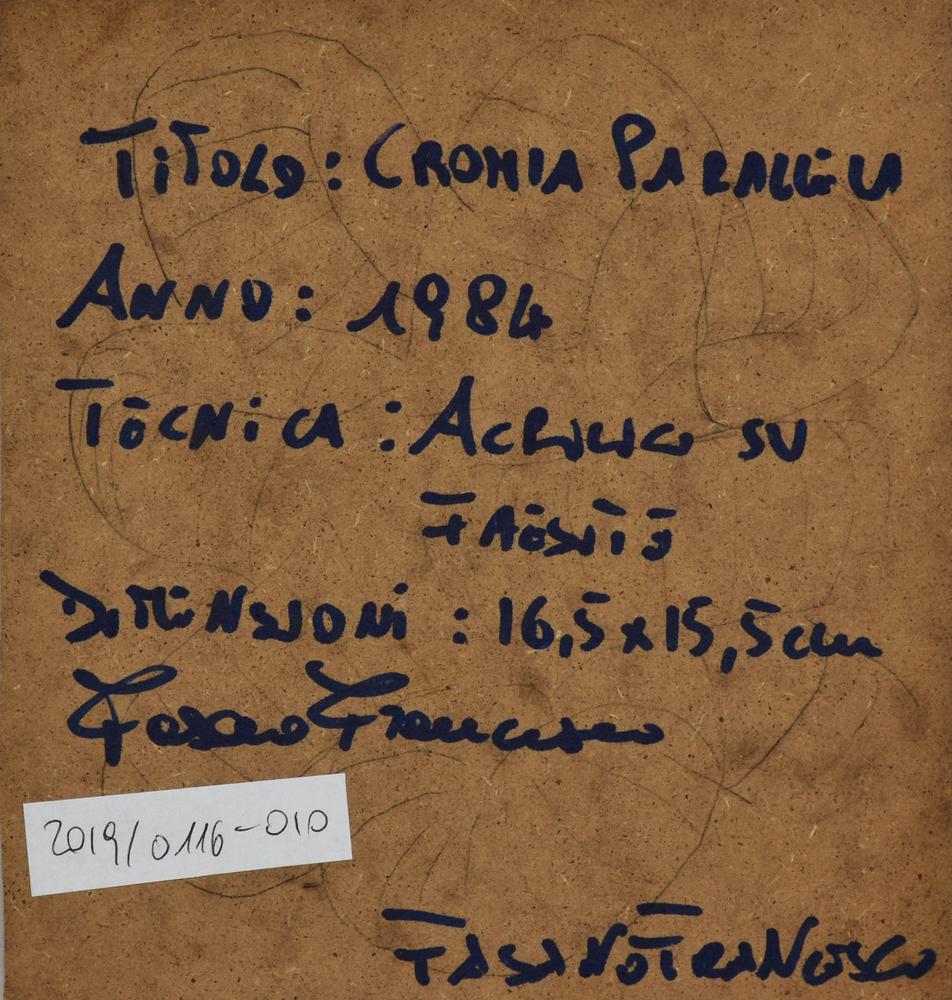 TITOLO: CROMIA PARALLELA
ANNO: 1984
TECNICA: ACRILICO SU
FAESITE
DIMENSIONI: 16,5x15,5 cm
Fasano Francesco
2019/0116-010
FASANO FRANCESCO